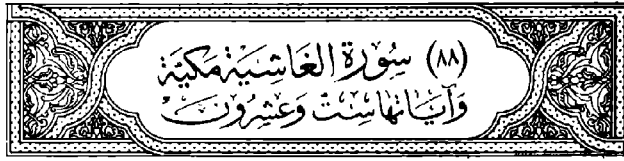 (٨٨) سُورَة الغَاشِيَة مَكِيَّة
وَآيَاتهَا سِتّ وَعِشْرُونَ